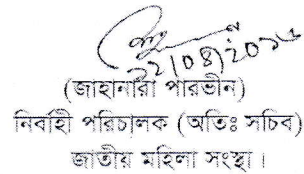 ২২/০৪/২০১৫
(জাহানারা পারভীন)
নির্বাহী পরিচালক (অতিঃ সচিব)
জাতীয় মহিলা সংস্থা।